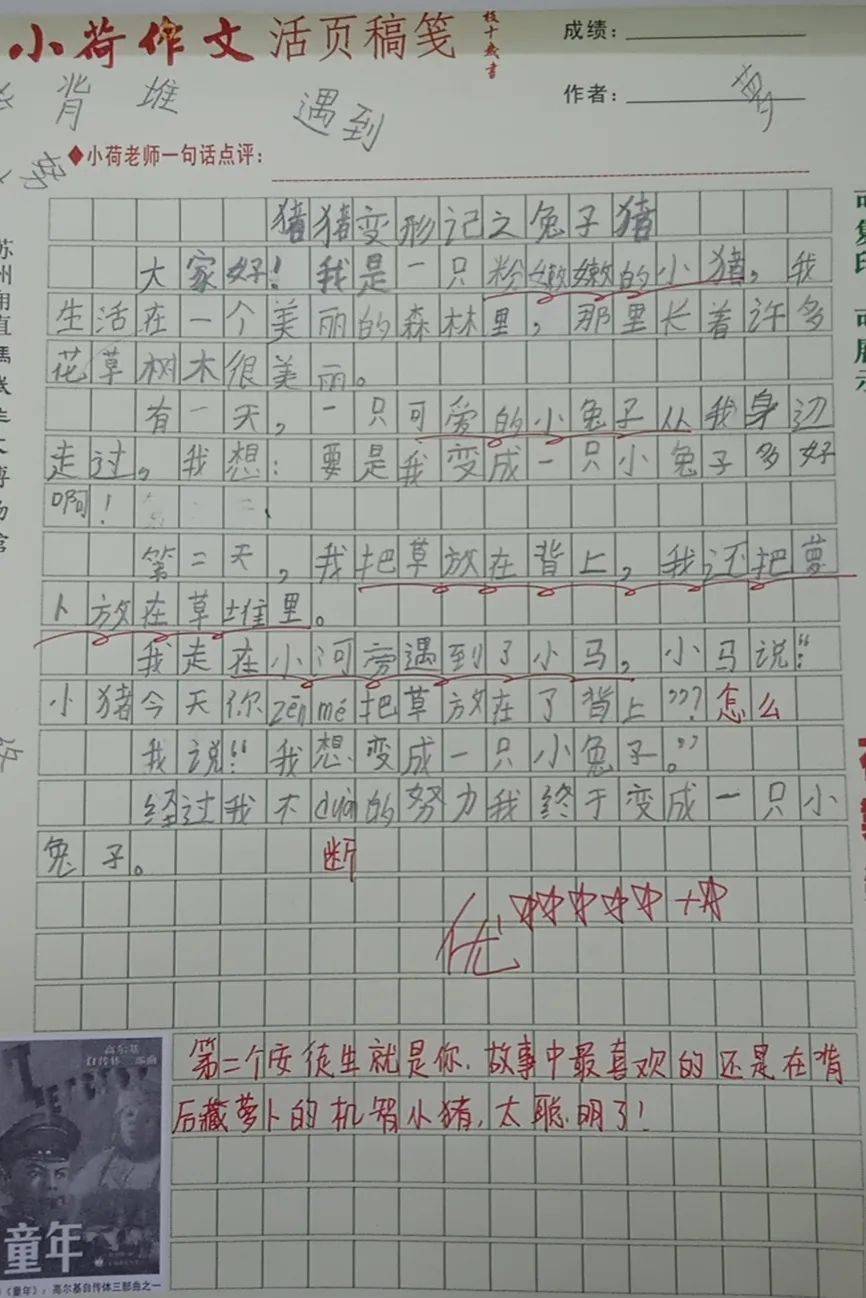 小荷作文 活页稿笺
成绩:
背 堆 遇到
作者:
◆小荷老师一句话点评:
猪猪变形记之兔子猪
大家好!我是一只粉嫩嫩的小猪,我
生活在一个美丽的森林里,那里长着许多
花草树木很美丽。
有一天,一只可爱的小兔子从我身边
走过,我想:要是我变成一只小兔子多好
啊!
第二天,我把草放在背上,我还把萝
卜放在草堆里。
我走在小河旁遇到了小马,小马说:“
小猪今天你zěn mé把草放在了背上”? 怎么
我说:“我想变成一只小兔子。”
经过我不duàn的努力我终于变成一只小
兔子。 断
优 ☆☆☆☆☆+☆
第二个安徒生就是你,故事中最喜欢的还是在背
后藏萝卜的机智小猪,太聪明了!
童年
《童年》:高尔基自传体三部曲之一